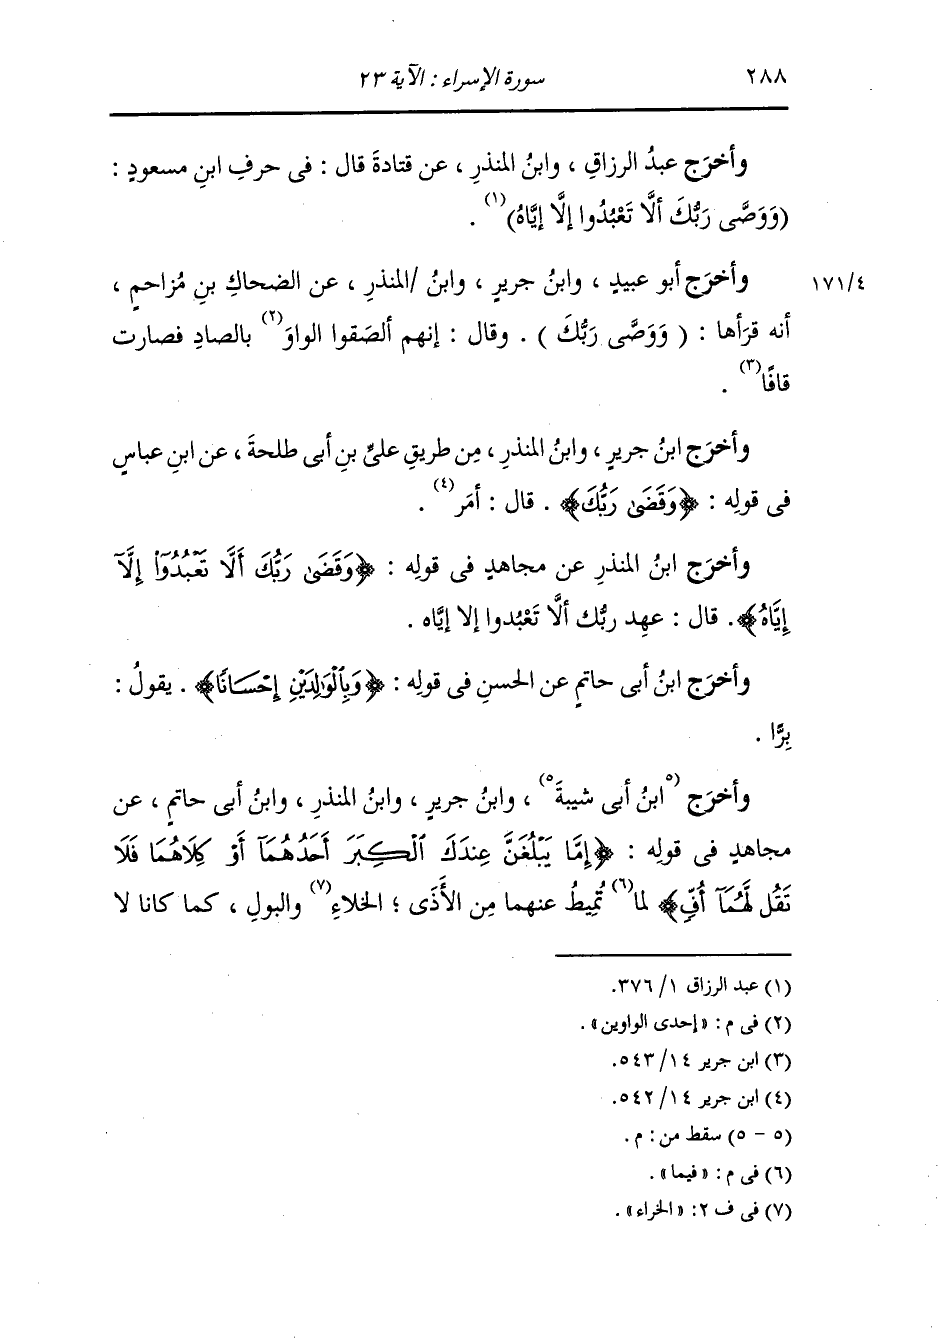 ٢٨٨ سورة الإسراء : الآية ٢٣
وأخرَج عبدُ الرزاقِ ، وابنُ المنذرِ ، عن قتادةَ قال : فى حرفِ ابنِ مسعودٍ :
(وَوَصَّى رَبُّكَ أَلَّا تَعْبُدُوا إلَّا إيَّاهُ)(١) .
وأخرَج أبو عبيدٍ ، وابنُ جريرٍ ، وابنُ /المنذرِ ، عن الضحاكِ بنِ مُزاحمٍ ، ١٧١/٤
أنه قرَأها : ( وَوَصَّى رَبُّكَ ) . وقال : إنهم ألصَقوا الواوَ(٢) بالصادِ فصارت
قافًا(٣) .
وأخرَج ابنُ جريرٍ ، وابنُ المنذرِ ، مِن طريقِ علىِّ بنِ أبى طلحةَ ، عن ابنِ عباسٍ
فى قولِه : ﴿وَقَضَىٰ رَبُّكَ﴾ . قال : أمَر(٤) .
وأخرَج ابنُ المنذرِ عن مجاهدٍ فى قولِه : ﴿وَقَضَىٰ رَبُّكَ أَلَّا تَعْبُدُوٓا۟ إِلَّآ
إِيَّاهُ﴾. قال : عهِد ربُّك ألَّا تَعْبُدوا إلا إيَّاه .
وأخرَج ابنُ أبى حاتمٍ عن الحسنِ فى قولِه : ﴿وَبِٱلْوَٰلِدَيْنِ إِحْسَٰنًا﴾ . يقولُ :
بِرًّا .
وأخرَج (٥ابنُ أبى شيبةَ٥) ، وابنُ جريرٍ ، وابنُ المنذرِ ، وابنُ أبى حاتمٍ ، عن
مجاهدٍ فى قولِه : ﴿إِمَّا يَبْلُغَنَّ عِندَكَ ٱلْكِبَرَ أَحَدُهُمَآ أَوْ كِلَاهُمَا فَلَا
تَقُل لَّهُمَآ أُفٍّ﴾ لما(٦) تُمِيطُ عنهما مِن الأَذَى ؛ الخلاءِ(٧) والبولِ ، كما كانا لا
(١) عبد الرزاق ١/ ٣٧٦.
(٢) فى م : «إحدى الواوين» .
(٣) ابن جرير ١٤/ ٥٤٣.
(٤) ابن جرير ١٤/ ٥٤٢.
(٥ - ٥) سقط من : م .
(٦) فى م : «فيما» .
(٧) فى ف ٢: «الخراء» .